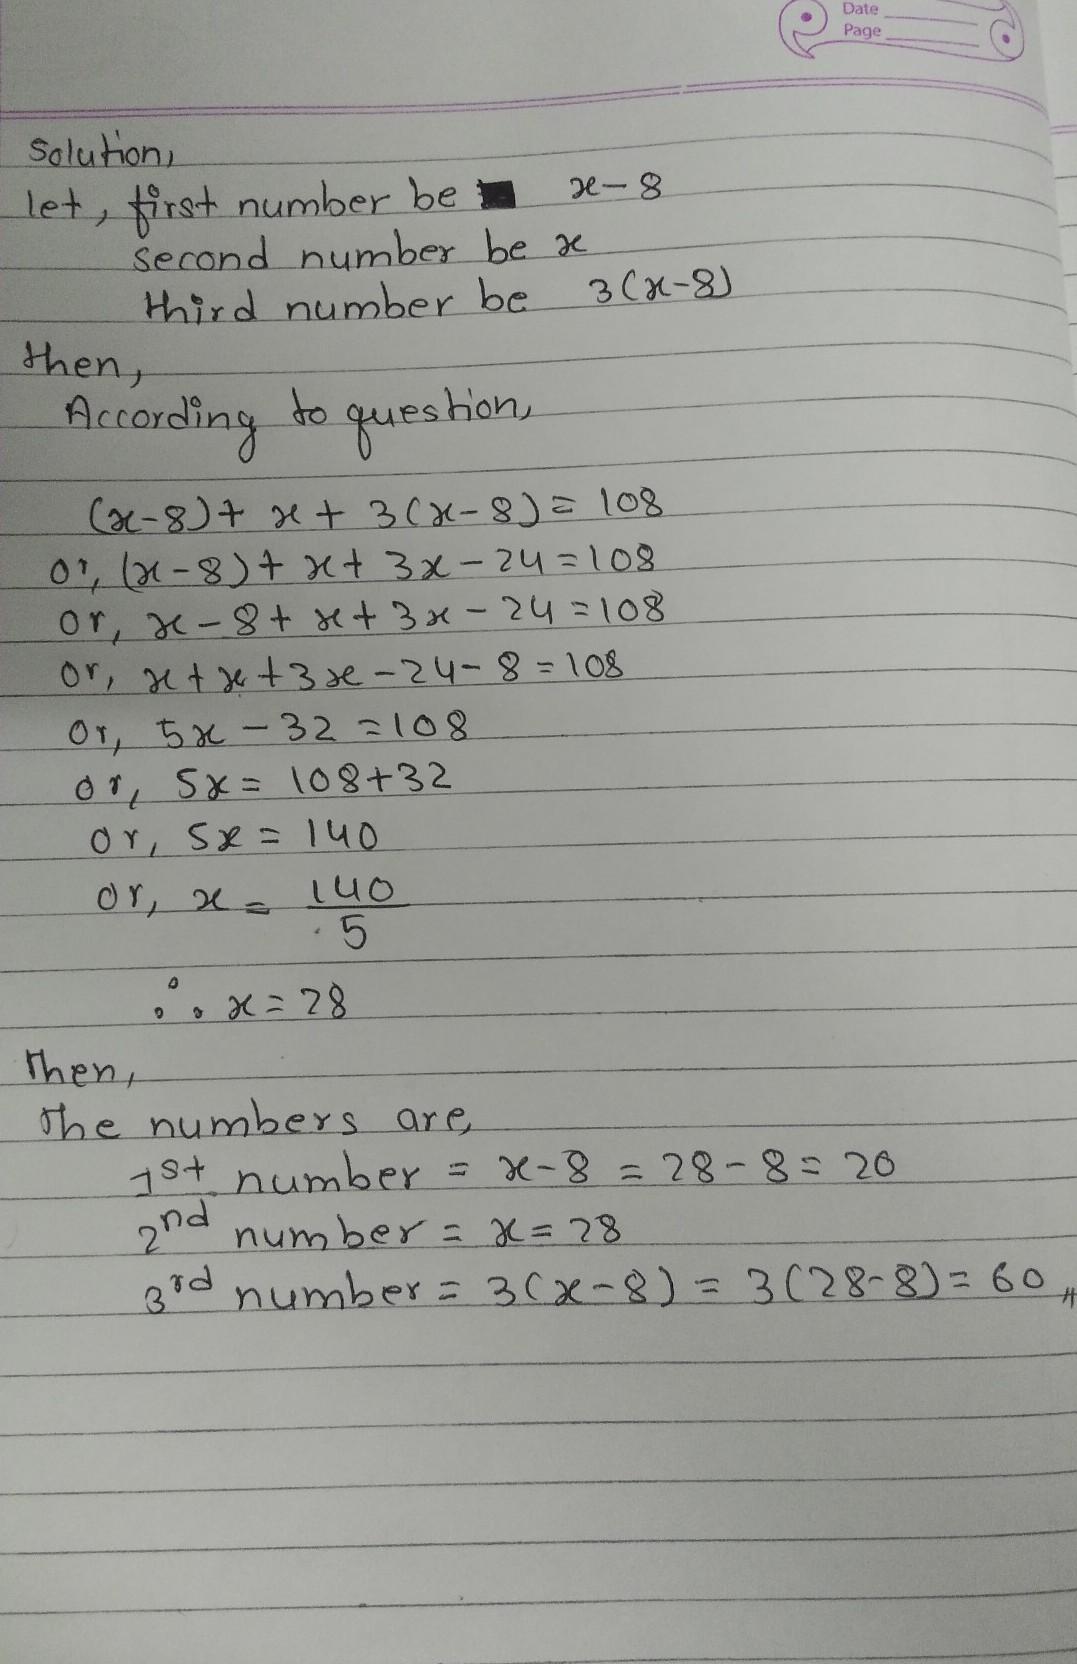 Date
Page
Solution,
let, first number be x-8
second number be x
third number be 3(x-8)
then,
According to question,
(x-8)+ x + 3(x-8) = 108
or, (x-8)+ x + 3x - 24 = 108
or, x-8+ x + 3x - 24 = 108
or, x + x + 3x - 24 - 8 = 108
or, 5x - 32 = 108
or, 5x = 108+32
or, 5x = 140
or, x = 140
5
∴ x = 28
Then,
The numbers are,
1st number = x-8 = 28-8 = 20
2nd number = x = 28
3rd number = 3(x-8) = 3(28-8) = 60